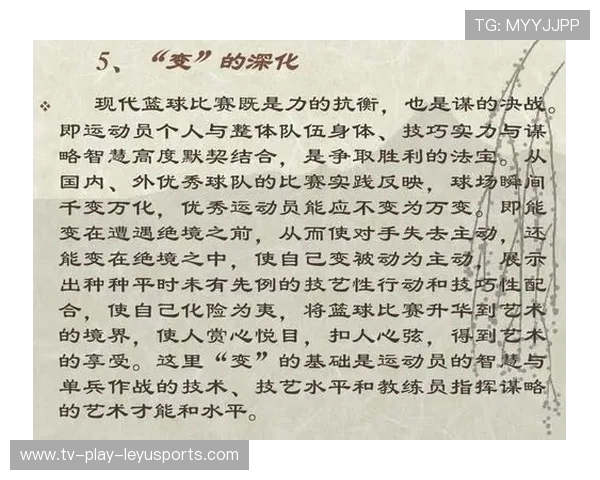 TG: MYYJJPP
5、“变”的深化
❖ 现代篮球比赛既是力的抗衡，也是谋的决战。
即运动员个人与整体队伍身体、技巧实力与谋
略智慧高度默契结合，是争取胜利的法宝。从
国内、外优秀球队的比赛实践反映，球场瞬间
千变万化，优秀运动员能应不变为万变。即能
变在遭遇绝境之前，从而使对手失去主动，还
能变在绝境之中，使自己变被动为主动，展示
出种种平时未有先例的技艺性行动和技巧性配
合，使自己化险为夷，将篮球比赛升华到艺术
的境界，使人赏心悦目，扣人心弦，得到艺术
的享受。这里“变”的基础是运动员的智慧与
单兵作战的技术、技艺水平和教练员指挥谋略
的艺术才能和水平。
www.tv-play-leyusports.com